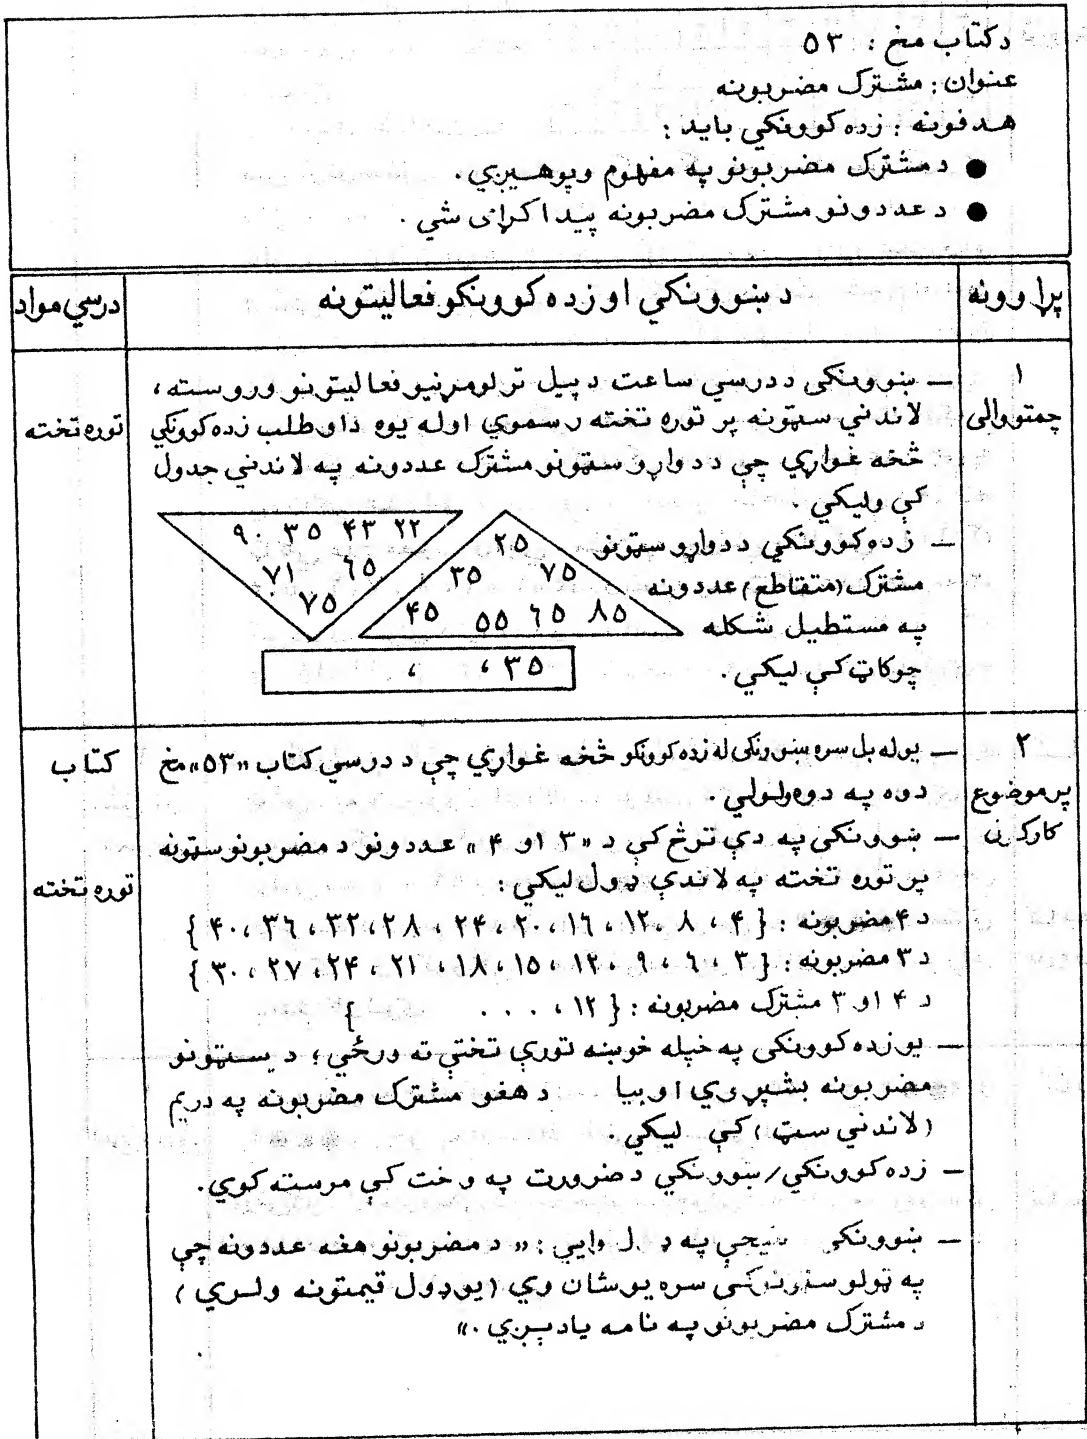 دکتاب مخ : ۵۳
عنوان : مشترک مضربونه
هدفونه : زده کوونکي باید :
● د مشترک مضربونو په مفهوم وپوهیږي .
● د عددونو مشترک مضربونه پیدا کړای شي .
پړاوونه
د ښوونکي او زده کوونکو فعالیتونه
درسي مواد
۱
چمتووالی
توره تخته
– ښوونکی د درسي ساعت د پیل تر لومړنیو فعالیتونو وروسته ،
لاندني سټونه پر توره تخته رسموي او له یوه داوطلب زده کوونکي
څخه غواړي چې د دواړو سټونو مشترک عددونه په لاندني جدول
کې ولیکي .
– زده کوونکي د دواړو سټونو
مشترک (متقاطع) عددونه
په مستطیل شکله
چوکاټ کې لیکي .
۲۲ ۴۳ ۳۵ ۹۰
۶۵ ۷۱
۷۵
۲۵
۷۵ ۳۵
۸۵ ۶۵ ۵۵ ۴۵
۳۵ ، ،
۲
پر موضوع
کار کړن
کتاب
توره تخته
– یو له بل سره ښوونکی له زده کوونکو څخه غواړي چې د درسي کتاب «۵۳» مخ
دوه په دوه ولولي .
– ښوونکی په دې ترڅ کې د «۳ او ۴» عددونو د مضربونو سټونه
پر توره تخته په لاندې ډول لیکي :
د ۴ مضربونه : { ۴ ، ۸ ، ۱۲ ، ۱۶ ، ۲۰ ، ۲۴ ، ۲۸ ، ۳۲ ، ۳۶ ، ۴۰ }
د ۳ مضربونه : { ۳ ، ۶ ، ۹ ، ۱۲ ، ۱۵ ، ۱۸ ، ۲۱ ، ۲۴ ، ۲۷ ، ۳۰ }
د ۴ او ۳ مشترک مضربونه : { ۱۲ ، . . . }
– یو زده کوونکی په خپله خوښه تورې تختې ته ورځي ؛ د سټونو
مضربونه بشپړوي او بیا د هغو مشترک مضربونه په دریم
(لاندني سټ) کې لیکي .
– زده کوونکي/ښوونکي د ضرورت په وخت کې مرسته کوي .
– ښوونکی په وایي : « د مضربونو هغه عددونه چې
په ټولو سټونو کې سره یوشان وي (یوډول قیمتونه ولري)
د مشترک مضربونو په نامه یادېږي .»